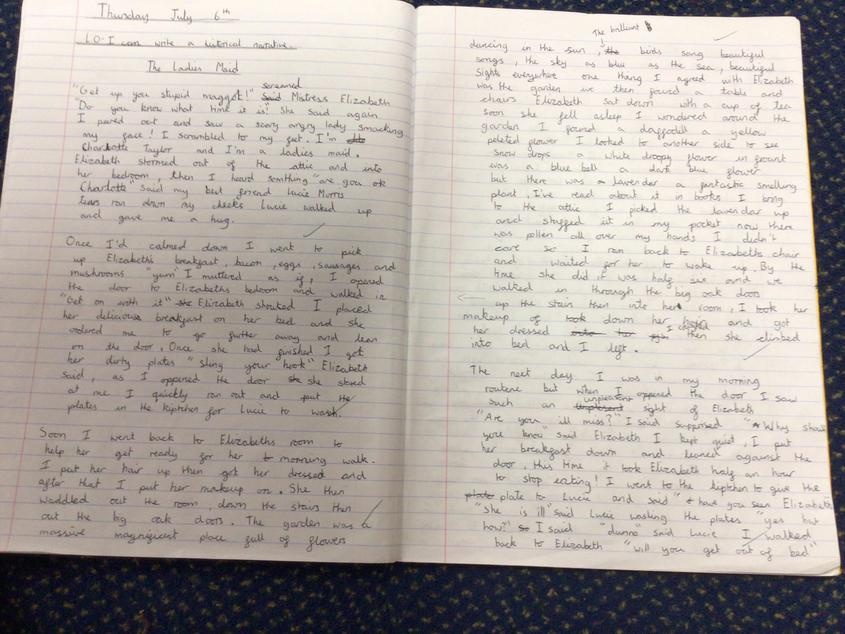 Thursday July 6th
LO-I can write a historical narrative.
The Ladies Maid
"Get up you stupid maggot!" screamed Mistress Elizabeth
"Do you know what time it is? She said again
I peered out and saw a scary angry lady smacking
my face! I scrambled to my feet. I'm
Charlotte Taylor and I'm a ladies maid.
Elizabeth stormed out of the attic and into
her bedroom, then I heard somthing "are you ok
Charlotte" said my best friend Lucie Morris
tears ran down my cheeks Lucie walked up
and gave me a hug.
Once I'd calmed down I went to pick
up Elizabeths breakfast, bacon, eggs, sausages and
mushrooms "yum" I muttered as if, I opened
the door to Elizabeths bedroom and walked in
"Get on with it" Elizabeth shouted I placed
her delicious breakfast on her bed and she
ordered me to go further away and lean
on the door. Once she had finished I got
her dirty plates "Sling your hook" Elizabeth
said, as I opened the door she stared
at me I quickly ran out and put the
plates in the kiptchen for Lucie to wash.
Soon I went back to Elizabeths room to
help her get ready for her morning walk.
I put her hair up then got her dressed and
after that I put her makeup on. She then
waddled out the room, down the stairs then
out the big oak doors. The garden was a
massive magnificent place full of flowers
The brilliant
dancing in the sun, birds song beautiful
songs, the sky as blue as the sea, beautiful
Sights everywhere one thing I agreed with Elizabeth
was the garden we then found a table and
chairs Elizabeth sat down with a cup of tea
soon she fell asleep I wondered around the
garden I found a daffodil a yellow
peteled flower I looked to another side to see
snow drops a white droopy flower in front
was a blue bell a dark blue flower
but there was a lavender a fantastic smelling
plant, I've read about it in books I bring
to the attic I picked the lavendar up
and stuffed it in my pocket now there
was pollen all over my hands I didn't
care so I ran back to Elizabeths chair
and waited for her to wake up. By the
time she did it was half six and we
walked in through the big oak doors
up the stairs then into her room, I took her
makeup of took down her and got
her dressed then she climbed
into bed and I left.
The next day I was in my morning
routine but when I opened the door I saw
such an unpleasent sight of Elizabeth
"Are you ill miss?" I said supprised "Why should
you know said Elizabeth I kept quiet, I put
her breakfast down and leaned against the
door, this time it took Elizabeth half an hour
to stop eating! I went to the kiptchen to give the
plate to Lucie and said "have you seen Elizabeth
"She is ill" said Lucie washing the plates "yes but
how?" I said "dunno" said Lucie I walked
back to Elizabeth "will you get out of bed"